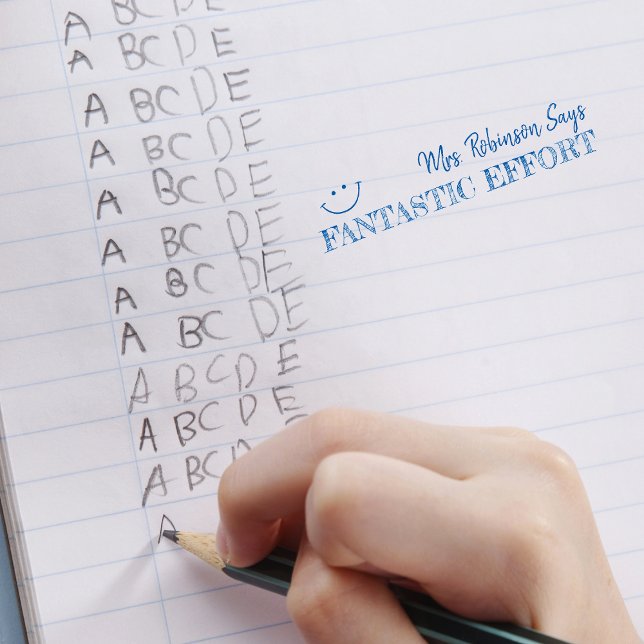 A BCDE
A BCDE
A BCDE
A BCDE
A BCDE
A BCDE
A BCDE
A BCDE
A BCDE
A BCDE
A BCD
A
Mrs. Robinson Says
FANTASTIC EFFORT